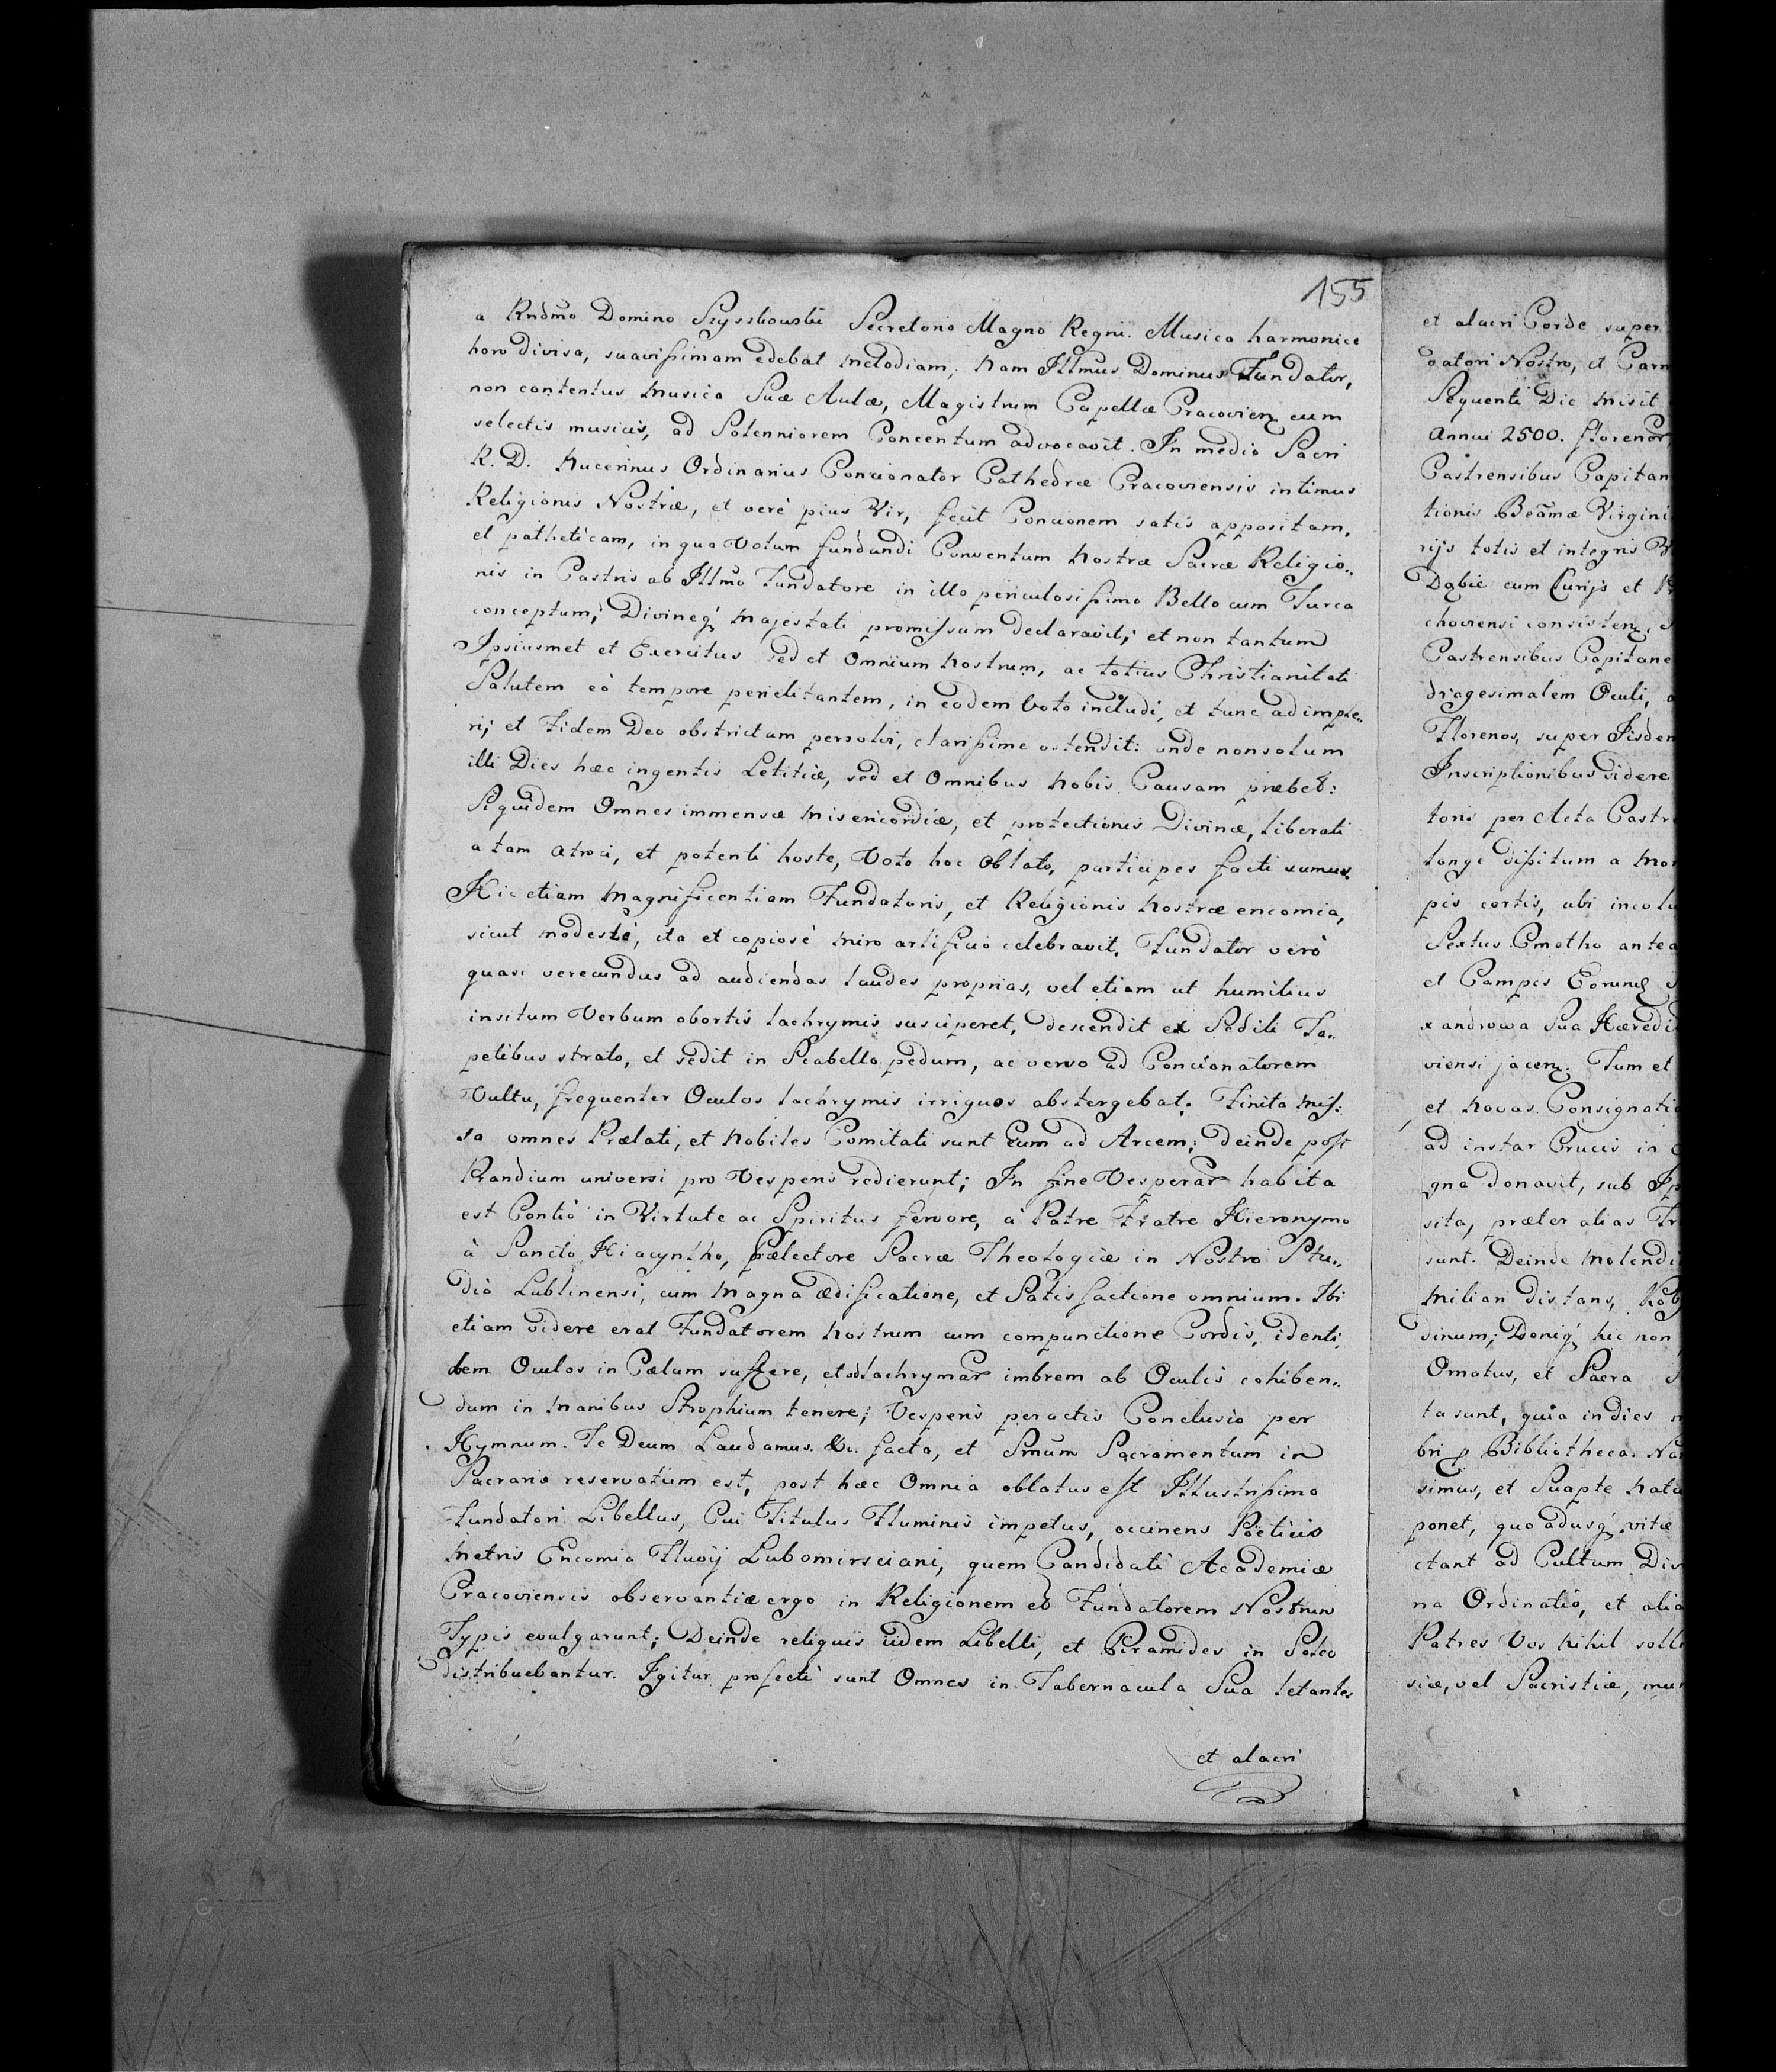 155
a Rndmo Domino Szyszkouskii Secretario Magno Regni. Musica harmonice
horo divisa, suavissimam edebat Melodiam; Nam Illmus Dominus Fundator,
non contentus Musica Suæ Aulæ, Magistrum Capellæ Cracovien cum
selectis musicis, ad Solenniorem Concentum advocavit. In medio Sacri
R. D. Nucerinus Ordinarius Concionator Cathedræ Cracoviensis intimus
Religionis Nostræ, et verè pius Vir, fecit Concionem satis appositam,
et patheticam, in qua Votum fundandi Conventum Nostræ Sacræ Religio„
nis in Castris ab Illmo Fundatore in illo periculosissimo Bello cum Turca
conceptum, Divineq́ Majestati promissum declaravit; et non tantum
Ipsiusmet et Exercitus sed et Omnium Nostrum, ac totius Christianitati
Salutem eò tempore periclitantem, in eodem Voto includi, et tunc adimple„
ri; et Fidem Deo obstrictam persolvi, clarissime ostendit: unde non solum
illi Dies hæc ingentis Letitiæ, sed et Omnibus Nobis Causam præbet:
Siquidem Omnes immensæ Misericordiæ, et protectionis Divinæ, liberati
a tam atroci, et potenti hoste, Voto hoc Oblato, participes facti sumus.
Hic etiam Magnificentiam Fundatoris, et Religionis Nostræ encomia,
sicut modestè, ita et copiosè miro artificio celebravit. Fundator verò
quasi verecundus ad audiendas laudes proprias, vel etiam ut humilius
insitum Verbum obortis lachrymis susciperet, descendit ex Sedili Ta„
petibus strato, et sedit in Scabello pedum, ac verso ad Concionatorem
Vultu, frequenter Oculos lachrymis irriguos abstergebat. Finita Mis:
sa omnes Prælati, et Nobiles Comitati sunt Eum ad Arcem; deinde post
Prandium universi pro Vesperis redierunt; In fine Vesperar habita
est Contio in Virtute ac Spiritus fervore, à Patre Fratre Hieronymo
à Sancto Hiacyntho, Prælectore Sacræ Theologiæ in Nostro Stu„
dio Lublinensi, cum Magna ædificatione, et Satisfactione omnium. Ibi
etiam videre erat Fundatorem Nostrum cum compunctione Cordis, identi„
dem Oculos in Cælum suffere, et ad lachrymar imbrem ab Oculis cohiben„
dum in Manibus Strophium tenere; Vesperis peractis Conclusio per
Hymnum. Te Deum Laudamus. &c. facta, et Smum Sacramentum in
Sacrario reservatum est, post hæc Omnia oblatus est Illustrissimo
Fundatori Libellus, Cui Titulus Fluminis impetus, occinens Poëticis
Metris Encomia Fluvij Lubomirsciani, quem Candidati Academiæ
Cracoviensis observantiæ ergo in Religionem et Fundatorem Nostrum
Typis evulgarunt; Deinde reliquis iidem Libelli, et Piramides in Folio
distribuebantur. Igitur profecti sunt Omnes in Tabernacula Sua letantes
et alacri
et alacri Corde super
datori Nostro, et
Sequenti Die Misit
Annui 2500. florenor
Castrensibus Capitan
tionis Beãmæ Virgini
rijs totis et integris
Dąbie cum Curijs et
choviensi consisten
Castrensibus Capitane
dragesimalem Oculi,
Florenos, super Iisdem
Inscriptionibus videre
toris per Acta Castr
longe dissitum a
pis certis, ubi incolu
Sextus Cmetho antea
et Campis Eorund
xandrowa Sua Hæredi
viensi jacen. Tum et
et Novas Consignatio
ad instar Crucis in
gna donavit, sub
sita, præter alias
sunt. Deinde Molendi
Miliari distans,
dinum; Doniq́ hic non
Ornatus, et Sacra
ta sunt, quia in dies
bri p Bibliotheca.
simus, et Suapte Natu
ponet, quo adusq́ vitæ
ctant ad Cultum Div
na Ordinatio, et alia
Patres Vos Nihil solli
siæ, vel Sacristiæ,